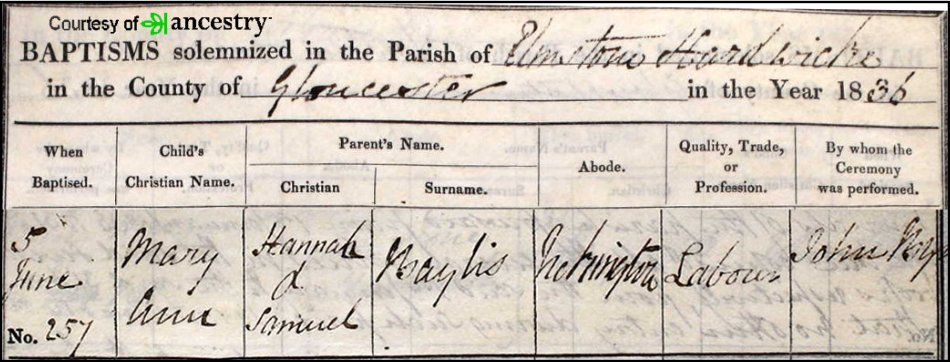 Courtesy of ancestry
BAPTISMS solemnized in the Parish of Elmstone Hardwicke
in the County of Gloucester in the Year 1836
When Baptised.
Child's Christian Name.
Parent's Name.
Christian
Surname.
Abode.
Quality, Trade, or Profession.
By whom the Ceremony was performed.
5
June
No. 257
Mary
Ann
Hannah
&
Samuel
Labour
John
No.